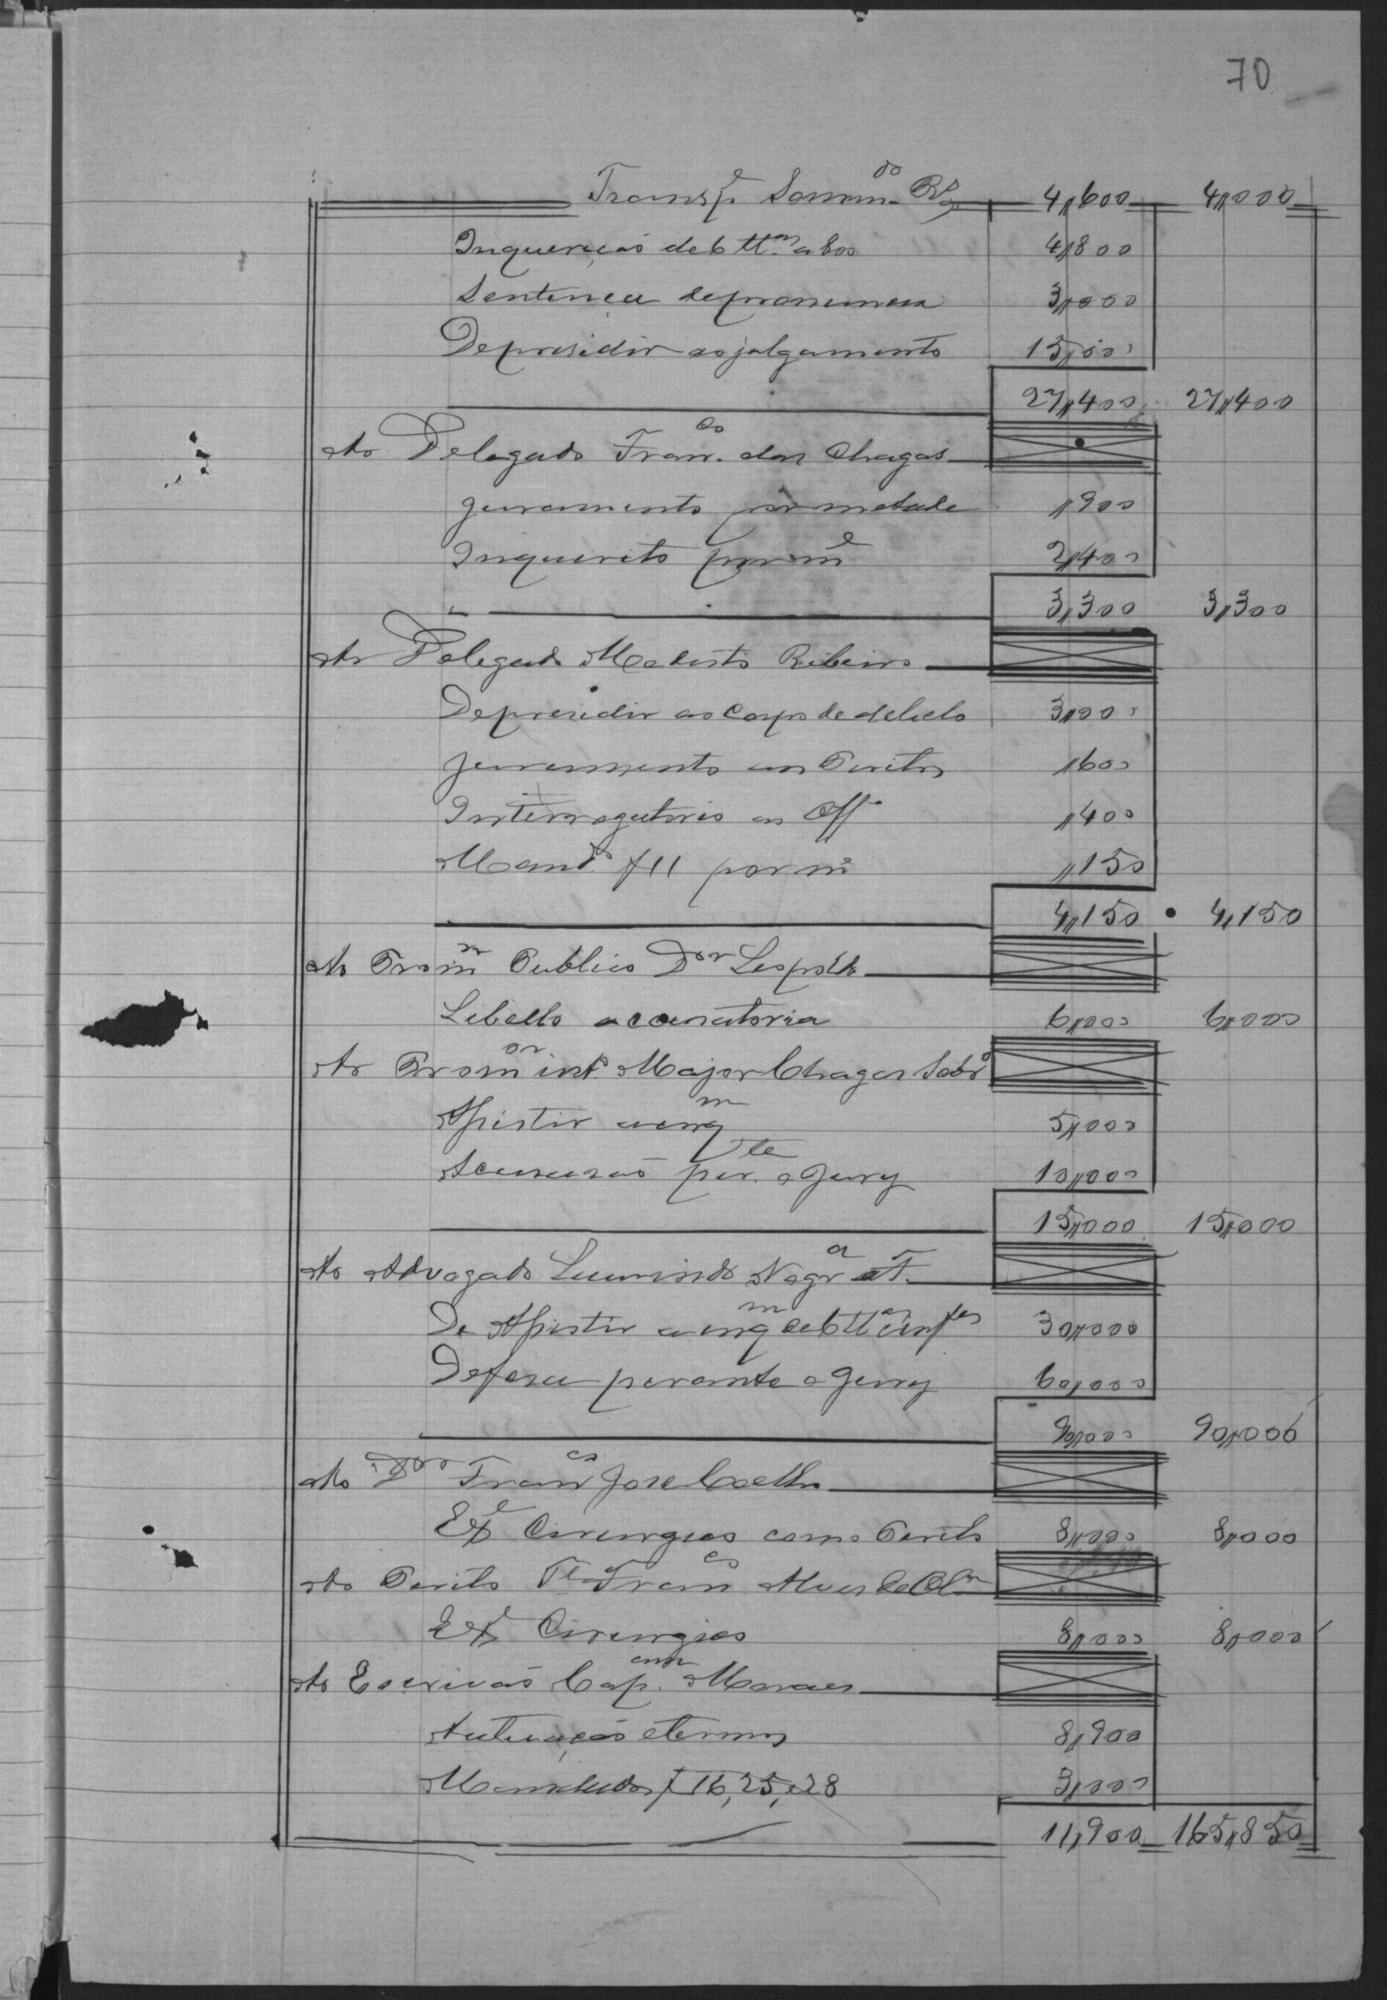 70
Transpe Somm.do Rs 4,,600 4,,000
Inquerição de 6 tt.as a 800 4,,800
Sentença de pronuncia 3,,000
De presidir ao julgamento 15,,000
27,,400 27,,400
Ao Delegado Fran.co das Chagas
juramento por metade ,,900
Inquerito por me 2,,400
3,,300 3,,300
Ao Delegado Modesto Ribeiro
De presidir ao Corpo de delicto 3,,000
juramento aos Peritos ,,600
Interrogatorio ao Off. ,,400
Mand.o f 11 por me ,,150
4,,150 4,,150
Ao Publico Dor Leopoldo
Libello accusatorio 6,,000 6,,000
Ao Promor int.o Major Chagas Sobr.o
Assistir a inqm 5,,000
Accusação per.te o jury 10,,000
15,,000 15,,000
Ao Advogado
De Assistir a inqm de 6 tt.as 30,,000
Defesa perante o jury 60,,000
90,,000 90,,000
Ao Dor Franco José Coelho
Exe Cirurgico como Perito 8,,000 8,,000
Ao Perito Te Franco Alves de Olra
Exe Cirurgico 8,,000 8,,000
Ao Escrivão Cap.am Moraes
Autuação e termos 8,,900
Mandados f 16, 25, e 28 3,,000
11,,900 165,,850